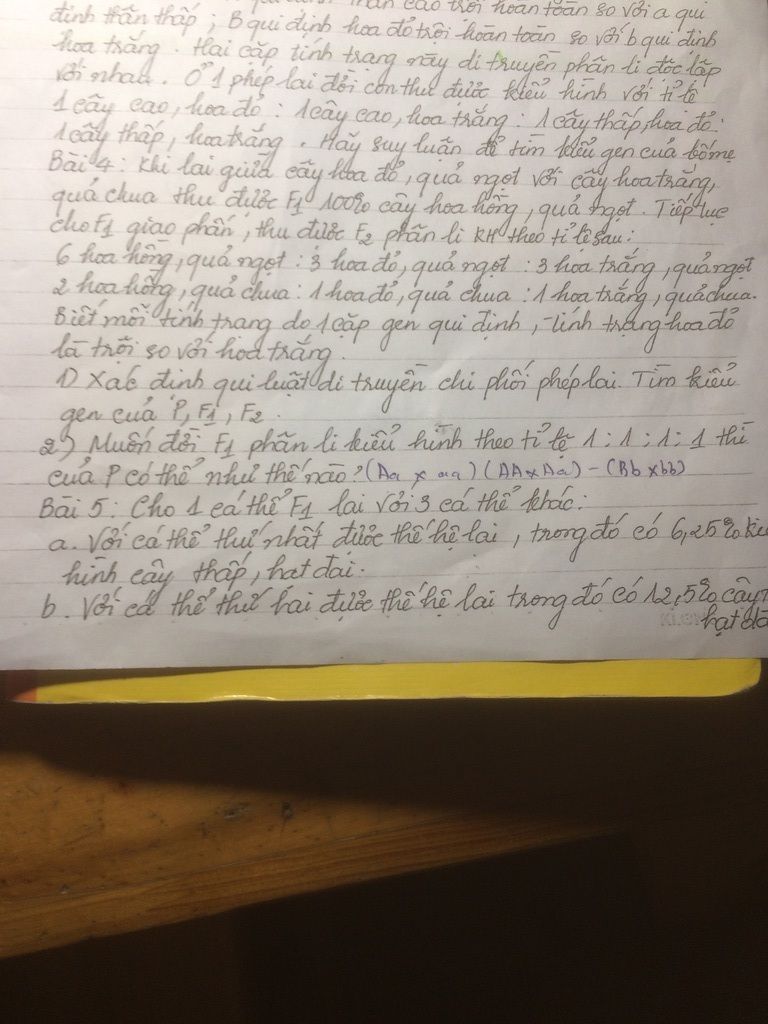 thân cao trội hoàn toàn so với a qui
định thân thấp; B qui định hoa đỏ trội hoàn toàn so với b qui định
hoa trắng. Hai cặp tính trạng này di truyền phân li độc lập
với nhau. Ở 1 phép lai đời con thu được kiểu hình với tỉ lệ
1 cây cao, hoa đỏ : 1 cây cao, hoa trắng : 1 cây thấp, hoa đỏ :
1 cây thấp, hoa trắng. Hãy suy luận để tìm kiểu gen của bố mẹ
Bài 4: Khi lai giữa cây hoa đỏ, quả ngọt với cây hoa trắng,
quả chua thu được F1 100% cây hoa hồng, quả ngọt. Tiếp tục
cho F1 giao phấn, thu được F2 phân li KH theo tỉ lệ sau:
6 hoa hồng, quả ngọt : 3 hoa đỏ, quả ngọt : 3 hoa trắng, quả ngọt
2 hoa hồng, quả chua : 1 hoa đỏ, quả chua : 1 hoa trắng, quả chua.
Biết mỗi tính trạng do 1 cặp gen qui định, tính trạng hoa đỏ
là trội so với hoa trắng.
1) Xác định qui luật di truyền chi phối phép lai. Tìm kiểu
gen của P, F1, F2.
2) Muốn đời F1 phân li kiểu hình theo tỉ lệ 1 : 1 : 1 : 1 thì
của P có thể như thế nào? (Aa x aa) (AA x Aa) - (Bb x bb)
Bài 5: Cho 1 cá thể F1 lai với 3 cá thể khác:
a. Với cá thể thứ nhất được thế hệ lai, trong đó có 6,25%
hình cây thấp, hạt dài.
b. Với cá thể thứ hai được thế hệ lai trong đó có 12,5% cây
hạt